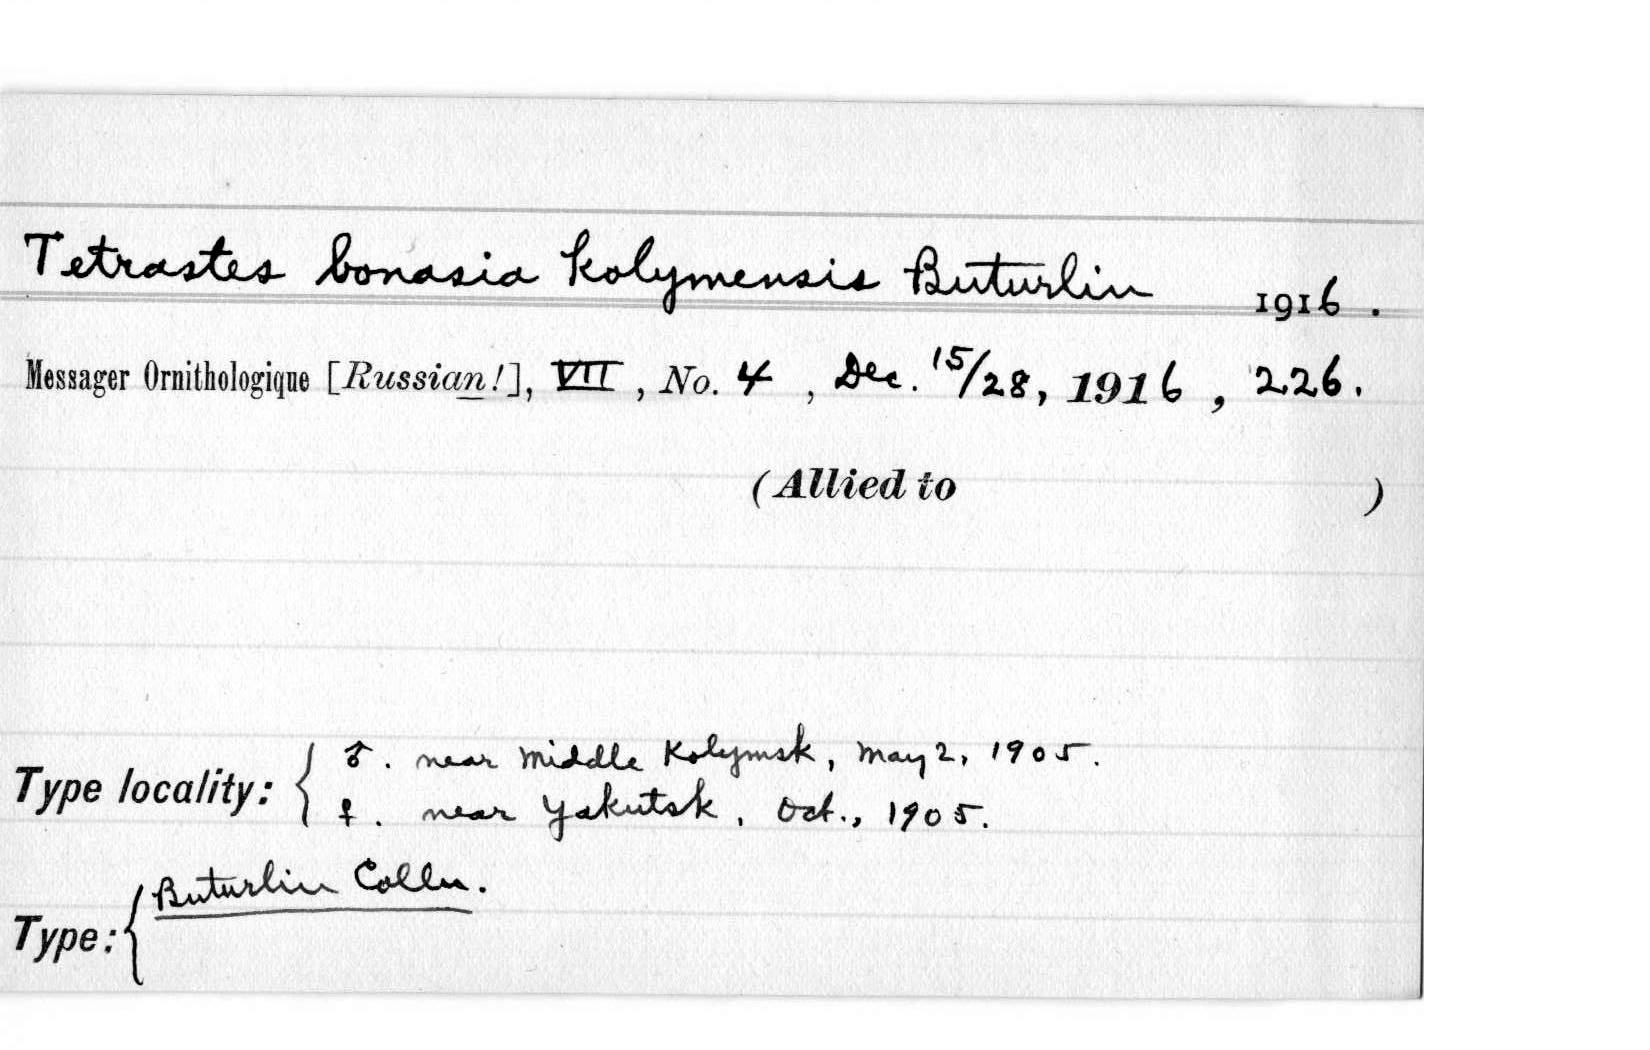 Tetrastes bonasia kolymensis Buturlin 1916.
Messager Ornithologique [Russian!], VII, No. 4, Dec. 15/28, 1916, 226.
(Allied to )
Type locality: { ♂. near Middle Kolymsk, May 2, 1905.
♀. near Yakutsk, Oct., 1905.
Buturlin Colln.
Type: {